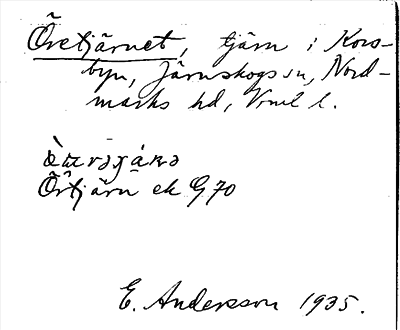 Öretjärnet, tjärn i Kors-
byn, Järnskogs sn, Nord-
marks hd, Vrml l.
Örtjärn ek G70
E. Andersson 1935.